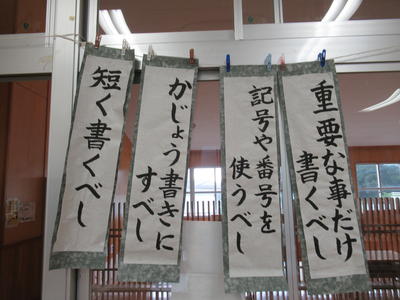 重要な事だけ
書くべし
記号や番号を
使うべし
かじょう書きに
すべし
短く書くべし